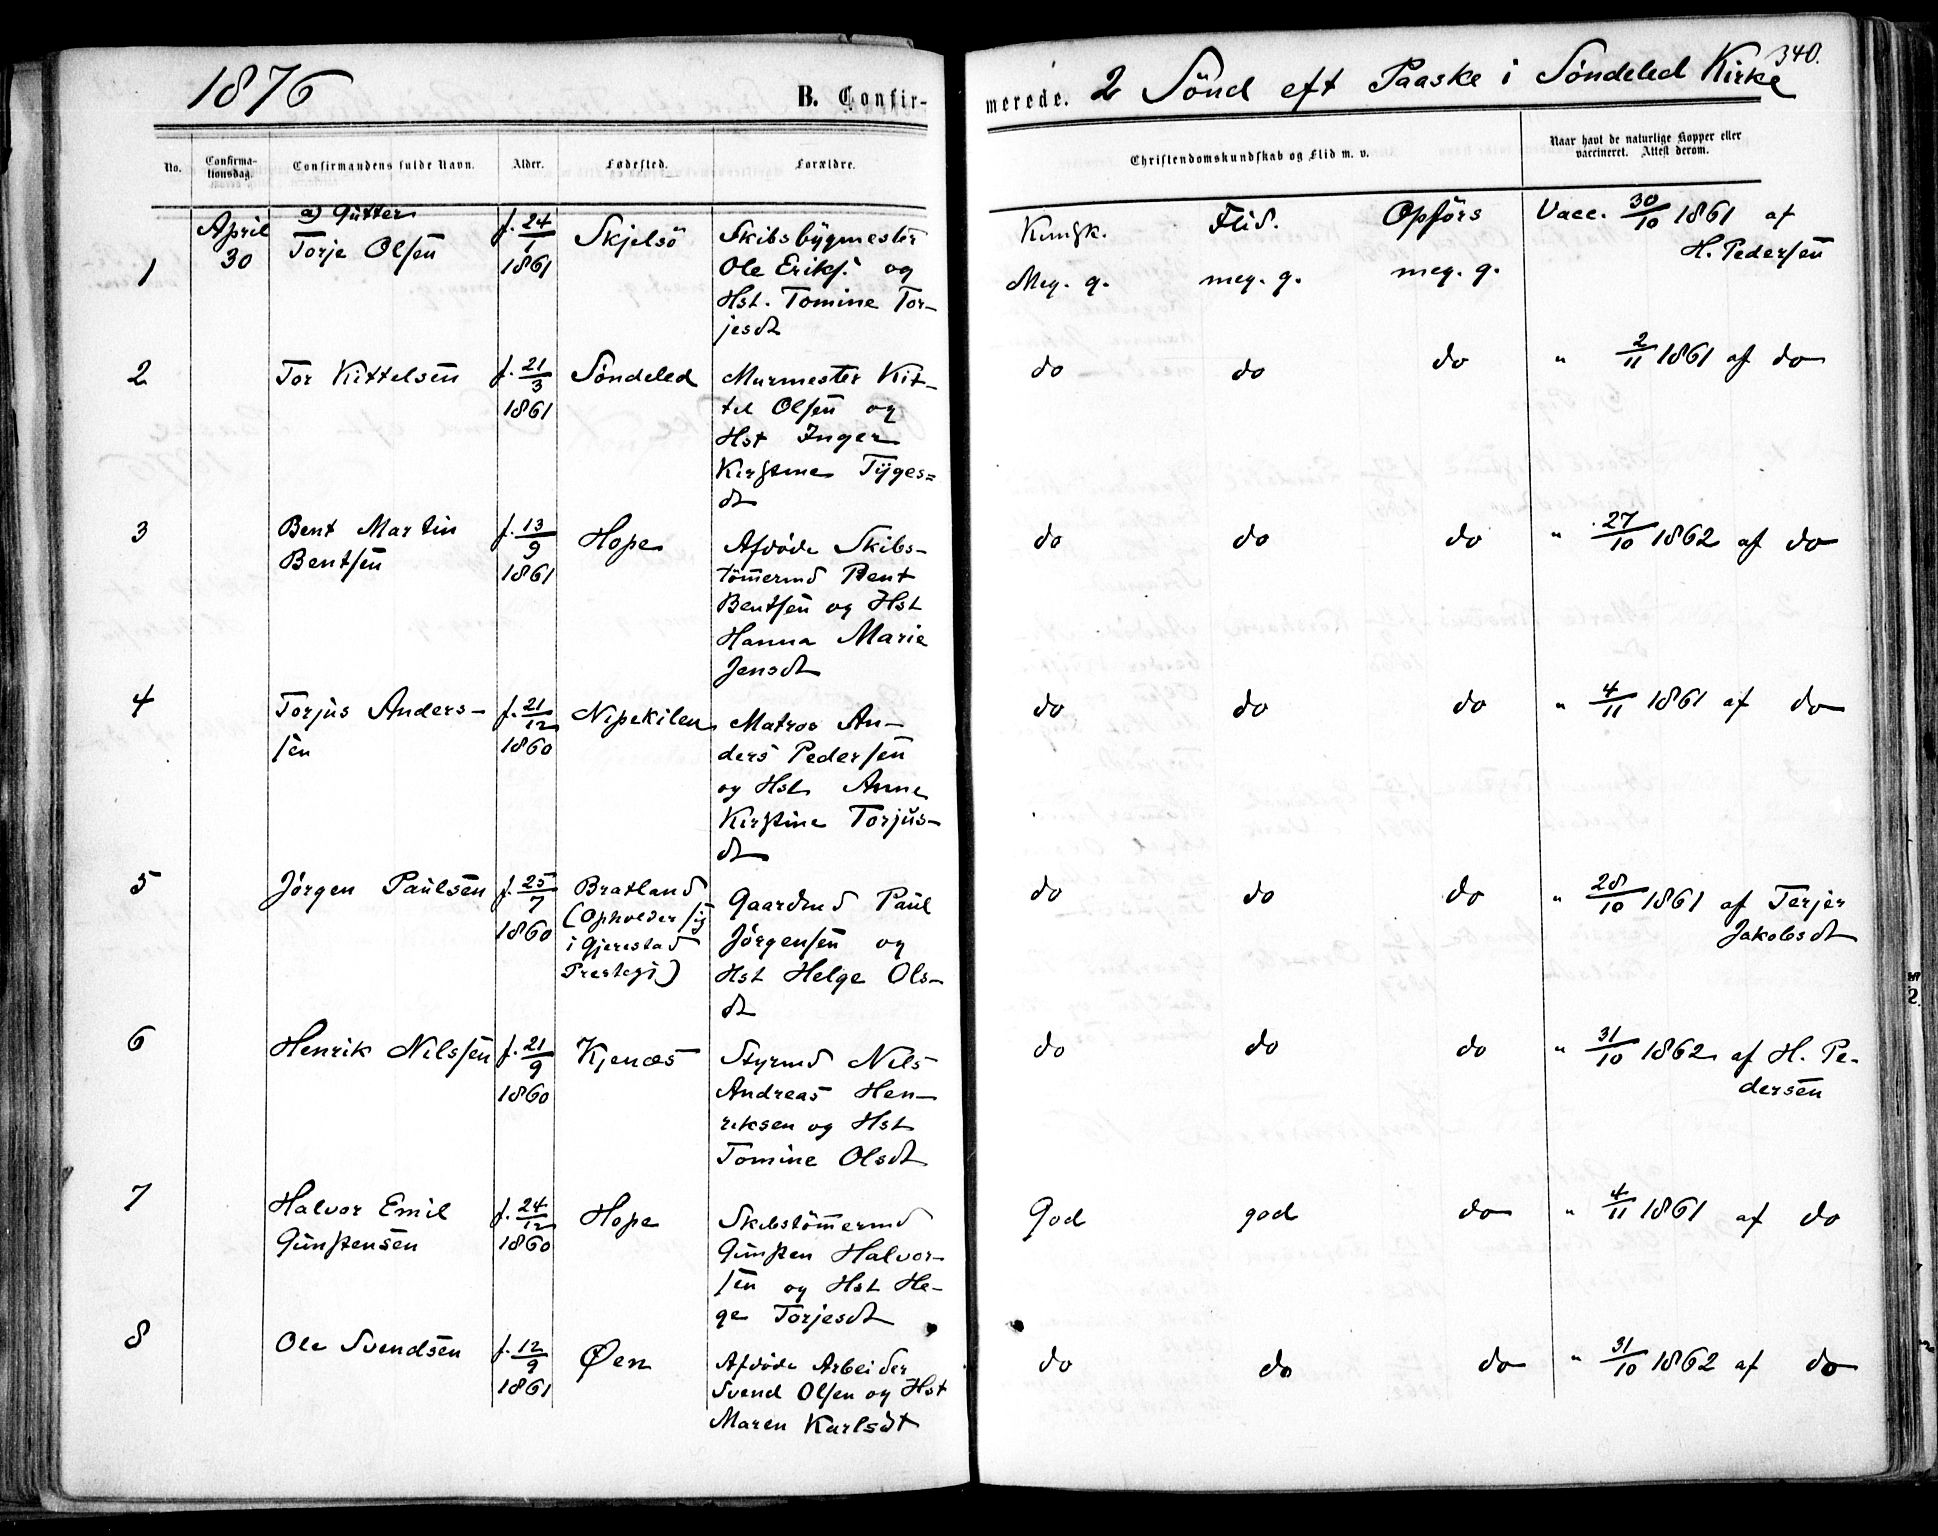 1876
B. Confir-
No.
Confirma-
tionsdag.
Confirmandens fulde Navn.
Alder.
Fødested.
Forældre.
1
April
30
a) Gutter
Torje Olsen
f. 24/1
1861
Skjelsö
Skibsbygmester
Ole Eriks: og
Hst. Tomine Tor-
jesdt
2
Tor Kittelsen
f. 21/3
1861
Söndeled
Murmester Kit-
tel Olsen og
Hst Inger
Kirstine Tyges=
dt
3
Bent Martin
Bentsen
f. 13/9
1861
Hope
Afdöde Skibs-
tömermd Bent
Bentsen og Hst
Hanna Marie
Jensdt
4
Torjus Anders-
sen
f. 21/12
1860
Nipekilen
Matros An-
ders Pedersen
og Hst Anne
Kirstine Torjus-
dt
5
Jörgen Paulsen
f. 25/7
1860
Bratland
(Opholder sig
i Gjerestad
Prestegj)
Gaardmd Paul
Jörgensen og
Hst Helge Ols-
dt
6
Henrik Nilssen
f. 21/9
1860
Kjenæs
Styrmd Nils
Andreas Hen-
riksen og Hst
Tomine Olsdt
7
Halvor Emil
Gunstensen
f. 24/12
1860
Hope
Skibstömermd
Gunsten Halvor-
sen og Hst He-
ge Torjesdt
8
Ole Svendsen
f. 12/9
1861
Øen
Afdöde Arbeider
Svend Olsen og Hst
Maren Karlsdt
merede. 2 Sönd eft Paaske i Söndeled Kirke
340.
Christendomskundskab og Flid m. v.
Naar havt de naturlige Kopper eller
vaccineret. Attest derom.
Kunsk. Flid. Opförs Vacc. 30/10 1861 af
H. Pedersen
Meg. g. meg. g. meg. g.
do do do " 2/11 1861 af do
do do do " 27/10 1862 af do
do do do " 4/11 1861 af do
do do do " 28/10 1861 af Terjer
Jakobsdt
do do do " 31/10 1862 af H. Pe-
dersen
God god do " 4/11 1861 af do
do do do " 31/10 1862 af do